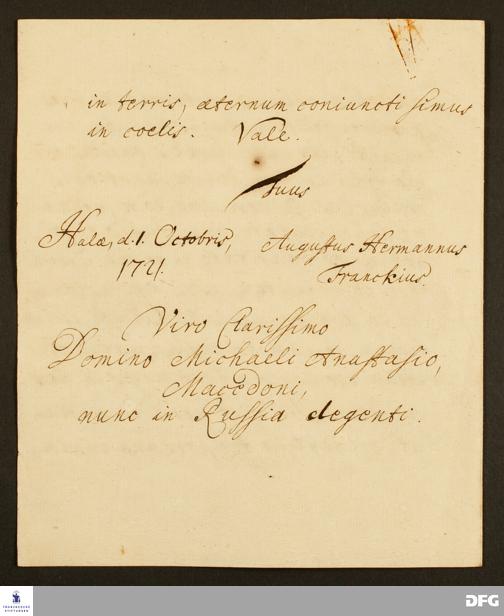 in terris, æternum coniuncti simus
in coelis. Vale.
Tuus
Halæ, d. 1. Octobris,
1721.
Augustus Hermannus
Franckius.
Viro Clarissimo
Domino Michaeli Anastasio,
Macedoni,
nunc in Russia degenti.
FRANCKESCHE
STIFTUNGEN
DFG